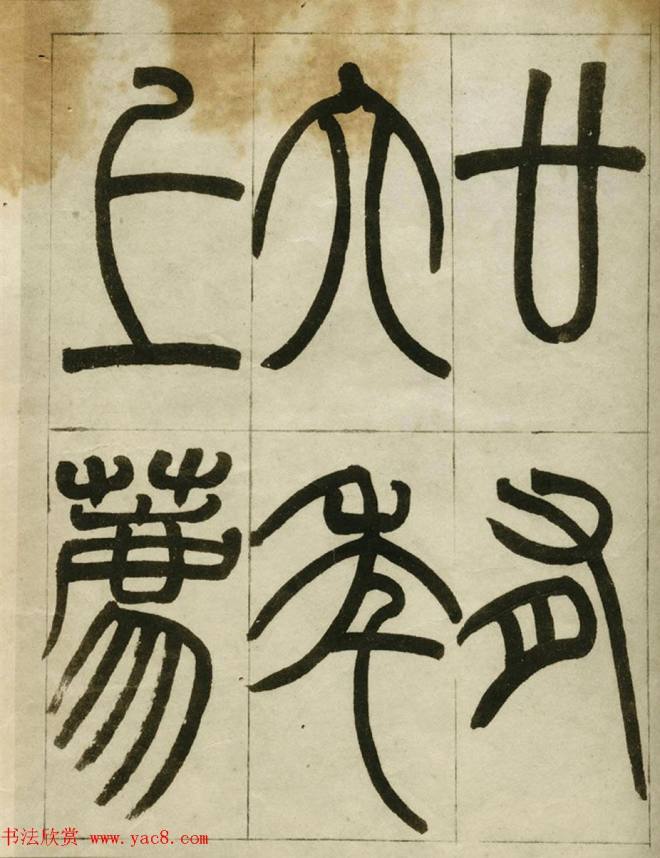 廿有
六年
上薦
书法欣赏 www.yac8.com